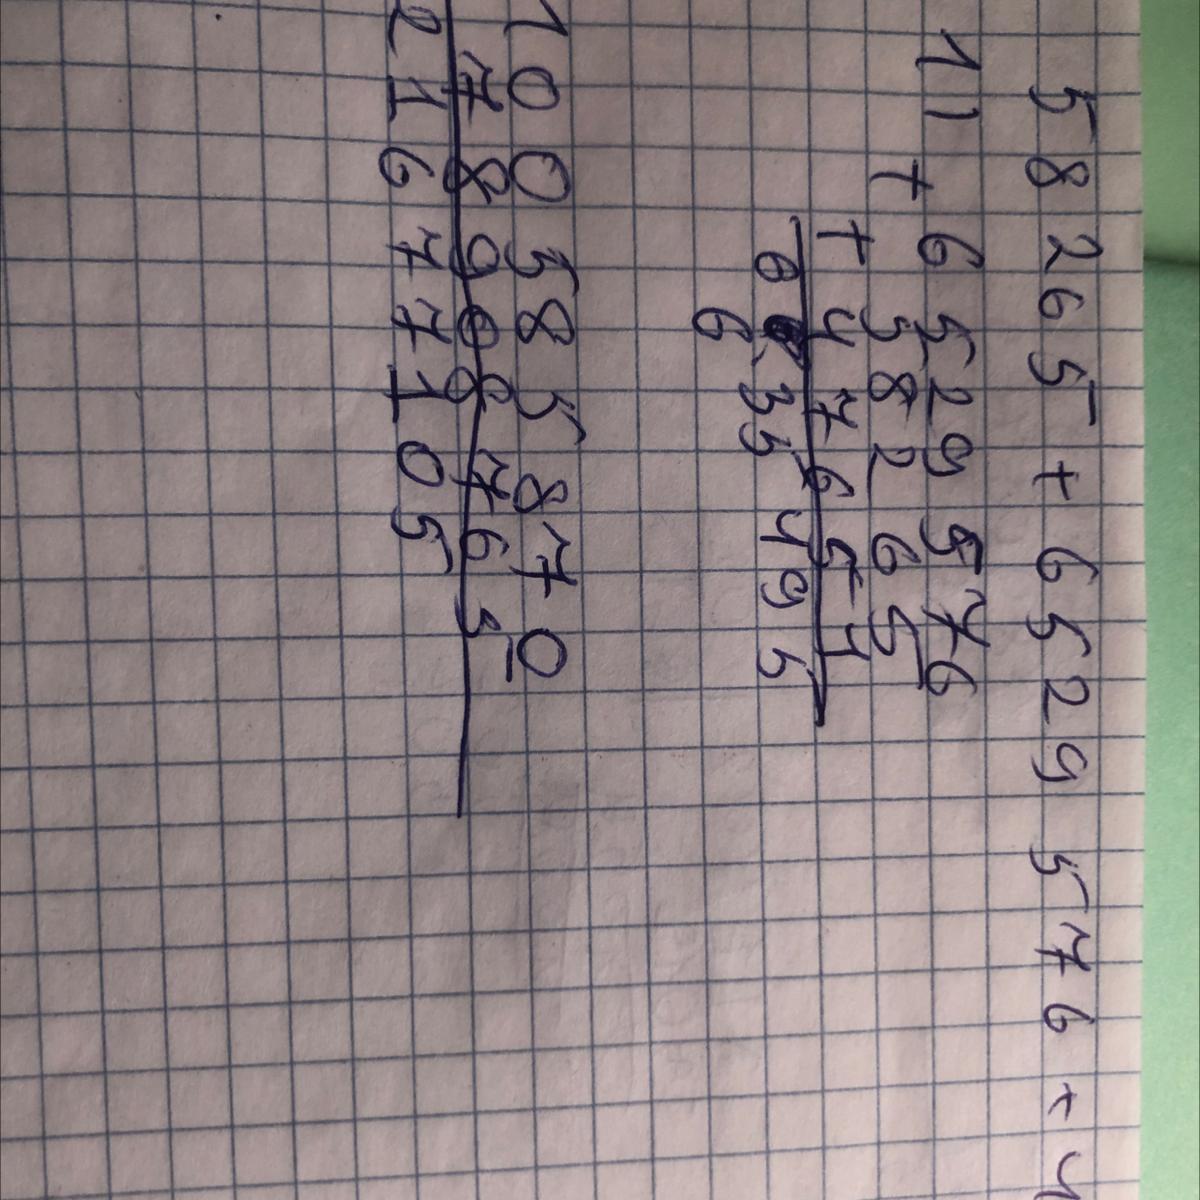 582655 + 6529576 + 4
1) + 6529576
582665
+ 476571
6
6 35 495
10038 5870
7890876 5
216771 05